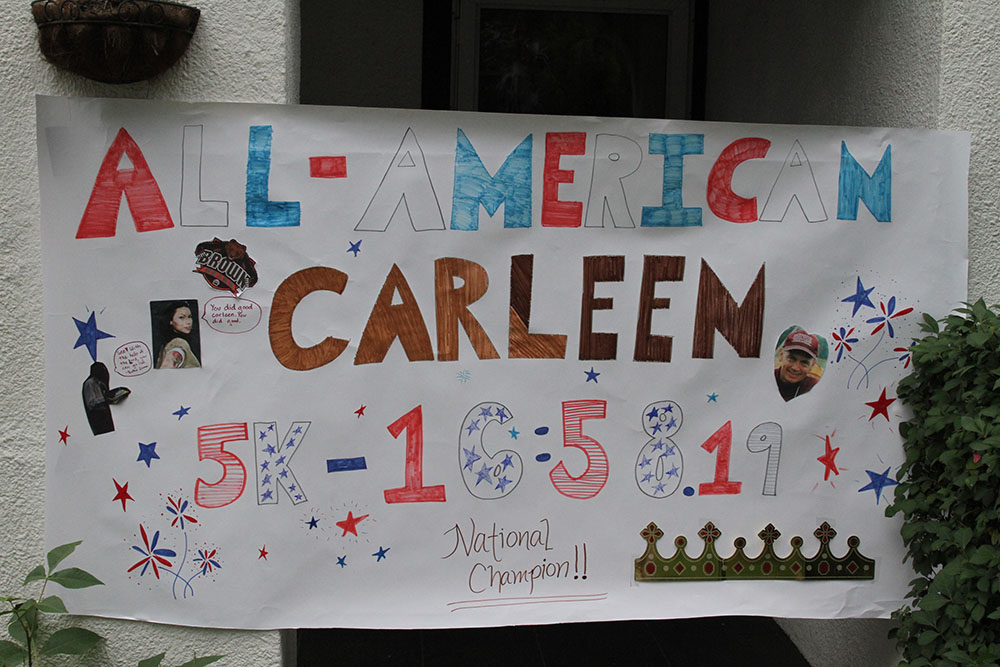 ALL-AMERICAN
BROWN
CARLEEN
You did good
Carleen. You
did good.
5K-16:58.19
National
Champion!!